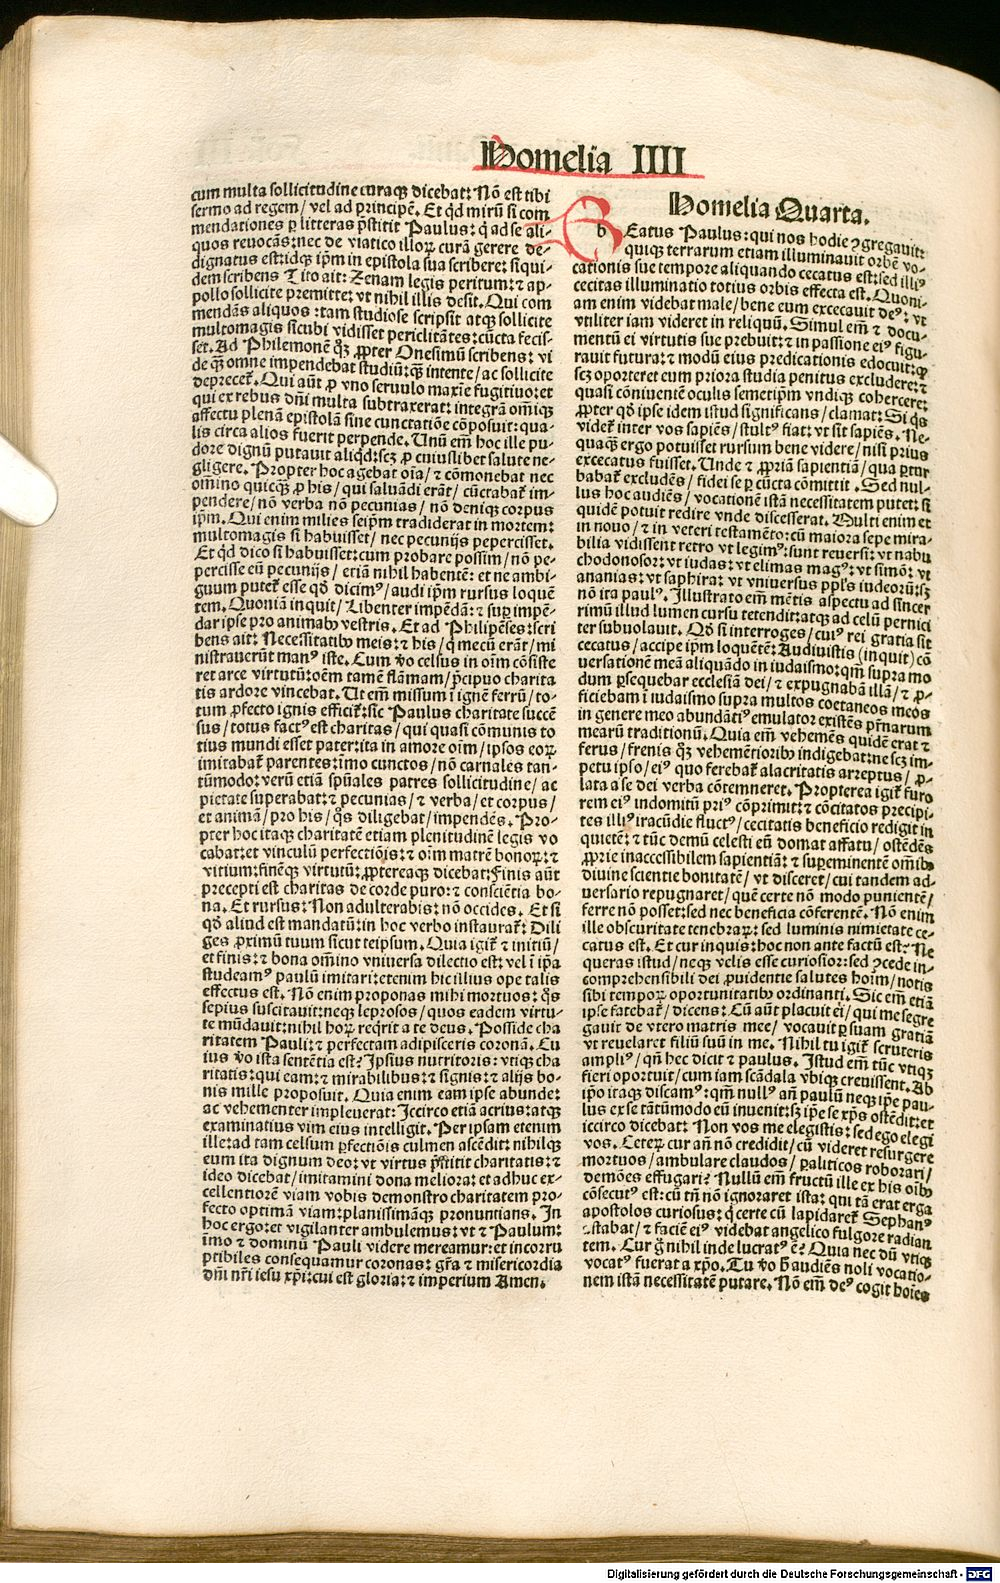 Homelia IIII
cum multa sollicitudine curaqꝫ dicebat: Nõ est tibi
sermo ad regem / vel ad principẽ. Et qđ mirũ si com
mendationes ꝑ litteras p̃stitit Paulus: q̃ ad se ali-
quos reuocãs: nec de viatico illoꝝ curã gerere de-
dignatus est: idqꝫ ip̃m in epistola sua scribere: siqui-
dem scribens Tito ait: Zenam legis peritum: ⁊ ap-
pollo sollicite premitte: vt nihil illis desit. Qui com
mendãs aliquos : tam studiose scripsit atqꝫ sollicite
multomagis sicubi vidisset periclitãtes: cũcta fecis-
set. Ad Philemonẽ qꝫ ꝓpter Onesimũ scribens: vi
de qꝫ omne impendebat studiũ: qꝫ intente / ac sollicite
deprecet᷑. Qui aũt ꝓ vno seruulo maxĩe fugitiuo: et
qui ex rebus dñi multa subtraxerat: integrã om̃iqꝫ
affectu plenã epistolã sine cunctatiõe cõposuit: qua-
lis circa alios fuerit perpende. Unũ em̃ hoc ille pu-
dore dignũ putauit aliqđ: scꝫ ꝓ cuiuslibet salute ne-
gligere. Propter hoc agebat oĩa / ⁊ cõmonebat nec
om̃ino quicqꝫ ꝓ his / qui saluãdi erãt / cũctabat᷑ im-
pendere / nõ verba nõ pecunias / nõ deniqꝫ corpus
ip̃m. Qui enim milies seip̃m tradiderat in mortem:
multomagis si habuisset / nec pecunijs pepercisset.
Et qđ dico si habuisset: cum probare possim / nõ pe-
percisse eũ pecunijs / etiã nihil habentẽ: et ne ambi-
guum putet᷑ esse qđ dicimꝰ / audi ip̃m rursus loquẽ
tem. Quoniã inquit / Libenter impẽdã: ⁊ suꝑ impẽ-
dar ipse pro animabꝫ vestris. Et ad Philipẽses: scri
bens ait: Necessitatibꝫ meis: ⁊ his / q̃ mecũ erãt / mi
nistrauerũt manꝰ iste. Cum ṽo celsus in oĩm cõsiste
ret arce virtutũ: oẽm tamẽ flãmam / p̃cipuo charita
tis ardore vincebat. Ut em̃ missum ĩ ignẽ ferrũ / to-
tum profecto ignis efficit᷑: sic Paulus charitate succẽ
sus / totus factꝰ est charitas / qui quasi cõmunis to
tius mundi esset pater: ita in amore oĩm / ipsos eoꝝ
imitabat᷑ parentes: ĩmo cunctos / nõ carnales tan-
tũmodo: verũ etiã spũales patres sollicitudine / ac
pietate superabat: ⁊ pecunias / ⁊ verba / et corpus /
et animã / pro his / qꝫs diligebat / impendẽs. Pro-
pter hoc itaqꝫ charitatẽ etiam plenitudinẽ legis vo
cabat: et vinculũ perfectiõis: ⁊ oĩm matrẽ bonoꝝ: ⁊
vitium: finẽqꝫ virtutũ: ꝓptereaqꝫ dicebat: Finis aũt
precepti est charitas de corde puro: ⁊ consciẽtia bo-
na. Et rursus: Non adulterabis: nõ occides. Et si
qđ aliud est mandatũ: in hoc verbo instaurat᷑: Dili
ges ꝓximũ tuum sicut teipsum. Quia igit᷑ ⁊ initiũ /
et finis: ⁊ bona om̃ino vniuersa dilectio est: vel ĩ ip̃a
studeamꝰ paulũ imitari: etenim hic illius ope talis
effectus est. Nõ enim proponas mihi mortuos: qꝫs
sepius suscitauit: neqꝫ leprosos / quos eadem virtu-
te mũdauit: nihil hoꝝ reqr̃it a te deus. Posside cha
ritatem Pauli: ⁊ perfectam adipisceris coronã. Cu
ius ṽo ista sentẽtia est? Ipsius nutritoris: vtiqꝫ cha
ritatis: qui eam: ⁊ mirabilibus: ⁊ signis: ⁊ alijs bo-
nis mille proposuit. Quia enim eam ipse abunde:
ac vehementer impleuerat: Iccirco etiã acrius: atqꝫ
examinatius vim eius intelligit. Per ipsam etenim
ille: ad tam celsum ꝑfectiõis culmen ascẽdit: nihilqꝫ
eum ita dignum deo: vt virtus p̃stitit charitatis: ⁊
ideo dicebat / imitamini dona meliora: et adhuc ex-
cellentiorẽ viam vobis demonstro charitatem pro-
fecto optimã viam: planissimãqꝫ pronuntians. In
hoc ergo: et vigilanter ambulemus: vt ⁊ Paulum:
ĩmo ⁊ dominũ Pauli videre mereamur: et incorru
ptibiles consequamur coronas: gr̃a ⁊ misericordia
dñi nr̃i iesu xp̃i: cui est gloria: ⁊ imperium Amen.
Homelia Quarta.
b Eatus Paulus: qui nos hodie ↄgregauit:
quiqꝫ terrarum etiam illuminauit orbẽ vo-
cationis sue tempore aliquando cecatus est: sed illiꝰ
cecitas illuminatio totius orbis effecta est. Quoni-
am enim videbat male / bene eum excecauit deꝰ: vt
vtiliter iam videret in reliquũ. Simul em̃ ⁊ docu-
mentũ ei virtutis sue prebuit: ⁊ in passione eiꝰ figu-
rauit futura: ⁊ modũ eius predicationis edocuit: qꝫ
scꝫ oporteret eum priora studia penitus excludere: ⁊
quasi cõniuentẽ oculis semetip̃m vndiqꝫ cohercere:
ꝓpter qđ ipse idem istud significans / clamat: Si qꝫs
videt᷑ inter vos sapiẽs / stultꝰ fiat: vt sit sapiẽs. Ne-
quaqꝫ ergo potuisset rursum bene videre / nisi prius
excecatus fuisset. Unde ⁊ ꝓpriã sapientiã / qua ꝑtur
babat᷑ excludẽs / fidei se ꝑ cũcta cõmittit. Sed nul-
lus hoc audiẽs / vocationẽ istã necessitatem putet: si
quidẽ potuit redire vnde discesserat. Multi enim et
in nouo / ⁊ in veteri testamẽto: cũ maiora sepe mira-
bilia vidissent retro vt legimꝰ: sunt reuersi: vt nabu
chodonosor: vt iudas: vt elimas magꝰ: vt simõ: vt
ananias: vt saphira: vt vniuersus ppl̃s iudeoꝝ: sꝫ
nõ ita paulꝰ. Illustrato em̃ mẽtis aspectu ad sincer
rimũ illud lumen cursu tetendit: atqꝫ ad celũ pernici
ter subuolauit. Qđ si interroges / cuiꝰ rei gratia sit
cecatus / accipe ip̃m loquẽtẽ: Audiuistis (inquit) cõ
uersationẽ meã aliquãdo in iudaismo: qm̃ supra mo
dum ꝑsequebar ecclesiã dei / ⁊ expugnabã illã / ⁊ ꝓ-
ficiebam ĩ iudaismo supra multos coetaneos meos
in genere meo abundãtiꝰ emulator existẽs pr̃narum
mearũ traditionũ. Quia em̃ vehemẽs quidẽ erat ⁊
ferus / frenis qꝫ vehemẽtioribꝫ indigebat: ne scꝫ im-
petu ipso / eiꝰ quo ferebat᷑ alacritatis arreptus / ꝓ-
lata a se dei verba cõtemneret. Propterea igit᷑ furo
rem eiꝰ indomitũ priꝰ cõprimit: ⁊ cõcitatos precipi-
tes illiꝰ iracũdie fluctꝰ / cecitatis beneficio redigit in
quietẽ: ⁊ tũc demũ celesti eũ domat affatu / ostẽdẽs
ꝓprie inaccessibilem sapientiã: ⁊ suꝑeminentẽ om̃ibꝫ
diuine scientie bonitatẽ / vt disceret / cui tandem ad-
uersario repugnaret / quẽ certe nõ modo punientẽ /
ferre nõ posset: sed nec beneficia cõferentẽ. Nõ enim
ille obscuritate tenebraꝝ: sed luminis nimietate ce-
catus est. Et cur inquis: hoc non ante factũ est? Ne
queras istud / neqꝫ velis esse curiosior: sed ↄcede in-
comprehensibili dei ꝓuidentie salutes hoĩm / notis
sibi tempoꝝ oportunitatibꝫ ordinanti. Sic em̃ etiã
ipse fatebat᷑ / dicens: Cũ aũt placuit ei / qui me segre
gauit de vtero matris mee / vocauit ꝑ suam gratiã
vt reuelaret filiũ suũ in me. Nihil tu igit᷑ scruteris
ampliꝰ / qñ hec dicit ⁊ paulus. Istud em̃ tũc vtiqꝫ
fieri oportuit / cum iam scãdala vbiqꝫ creuissent. Ab
ip̃o itaqꝫ discamꝰ: qm̃ nullꝰ añ paulũ neqꝫ ip̃e pau-
lus ex se tãtũmodo eũ inuenit: sꝫ ip̃e se xp̃s ostẽdit: et
iccirco dicebat: Non vos me elegistis: sed ego elegi
vos. Ceteꝝ cur añ nõ credidit / cũ videret resurgere
mortuos / ambulare claudos / ꝑaliticos roborari /
demões effugari? Nullũ em̃ fructũ ille ex his oĩbꝫ
cõsecutꝰ est: cũ tñ nõ ignoraret ista: qui tã erat erga
apostolos curiosus: q̃ certe cũ lapidaret᷑ Stephanꝰ
astabat / ⁊ faciẽ eiꝰ videbat angelico fulgore radian
tem. Cur g̃ nihil inde lucratꝰ ẽ? Quia nec dũ vtiqꝫ
vocatꝰ fuerat a xp̃o. Tu ṽo h̃ audiẽs noli vocatio-
nem istã necessitatẽ putare. Nõ em̃ deꝰ cogit hoĩes
Digitalisierung gefördert durch die Deutsche Forschungsgemeinschaft - DFG